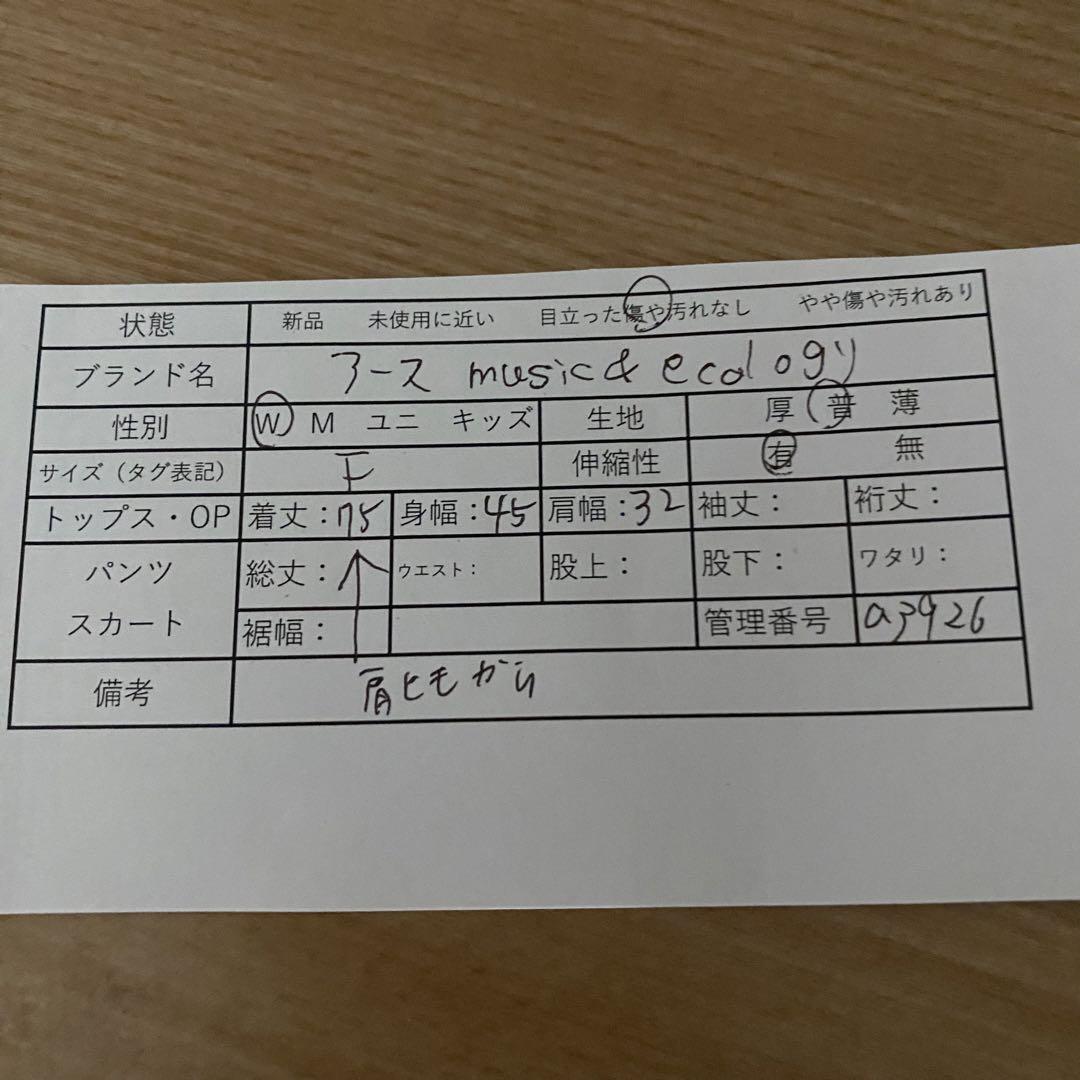 状態 新品 未使用に近い 目立った傷や汚れなし やや傷や汚れあり
ブランド名 アース music & ecology
性別 W M ユニ キッズ 生地 厚 普 薄
サイズ（タグ表記） F 伸縮性 有 無
トップス・OP 着丈：75 身幅：45 肩幅：32 袖丈： 裄丈：
パンツ 総丈： ウエスト： 股上： 股下： ワタリ：
スカート 裾幅： 管理番号 a3926
備考 肩ヒモから